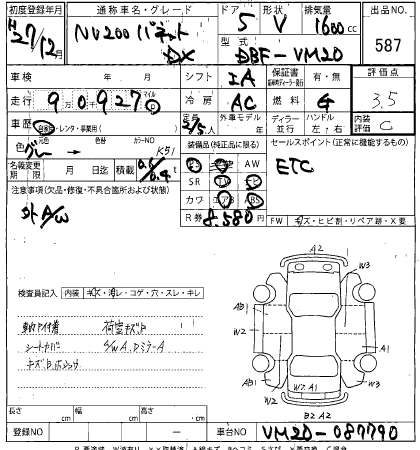 初度登録年月 通称車名・グレード ドア 形状 排気量 出品NO.
H27/12月 NV200 バネット DX 5 V 1600cc 587
型式 DBF-VM20
車検 年 月 シフト IA 保証書 有・無 評価点
走行 90927 マイル 冷房 AC 燃料 G 3.5
万 千 百
車歴 自家用・レンタ・事業用( ) 定員 2/5人 外車モデル 年 ディーラー 並行 ハンドル 左・右 内装評価 C
色 元色 グレー 色替 カラーNO K51 装備品(純正品に限る) セールスポイント(正常に機能するもの)
AW ETC
名義変更期限 月 日迄 積載 0.6/0.4t SR TV ナビ
カワ エアB ABS
注意事項(欠品・修復・不具合箇所および状態) R券 8.580円
外A/W FW キズ・ヒビ割・リペア跡・X要
検査員記入 内装 キズ・汚レ・コゲ・穴・スレ・キレ
荷室キズP
シートカバー S/W A.Dミラー A
A2 W3 AB1 A1 W2 W2 AB1 W3 W2 A1 B2 A2
長さ cm 幅 cm 高さ cm
登録NO ー 車台NO VM20-087790